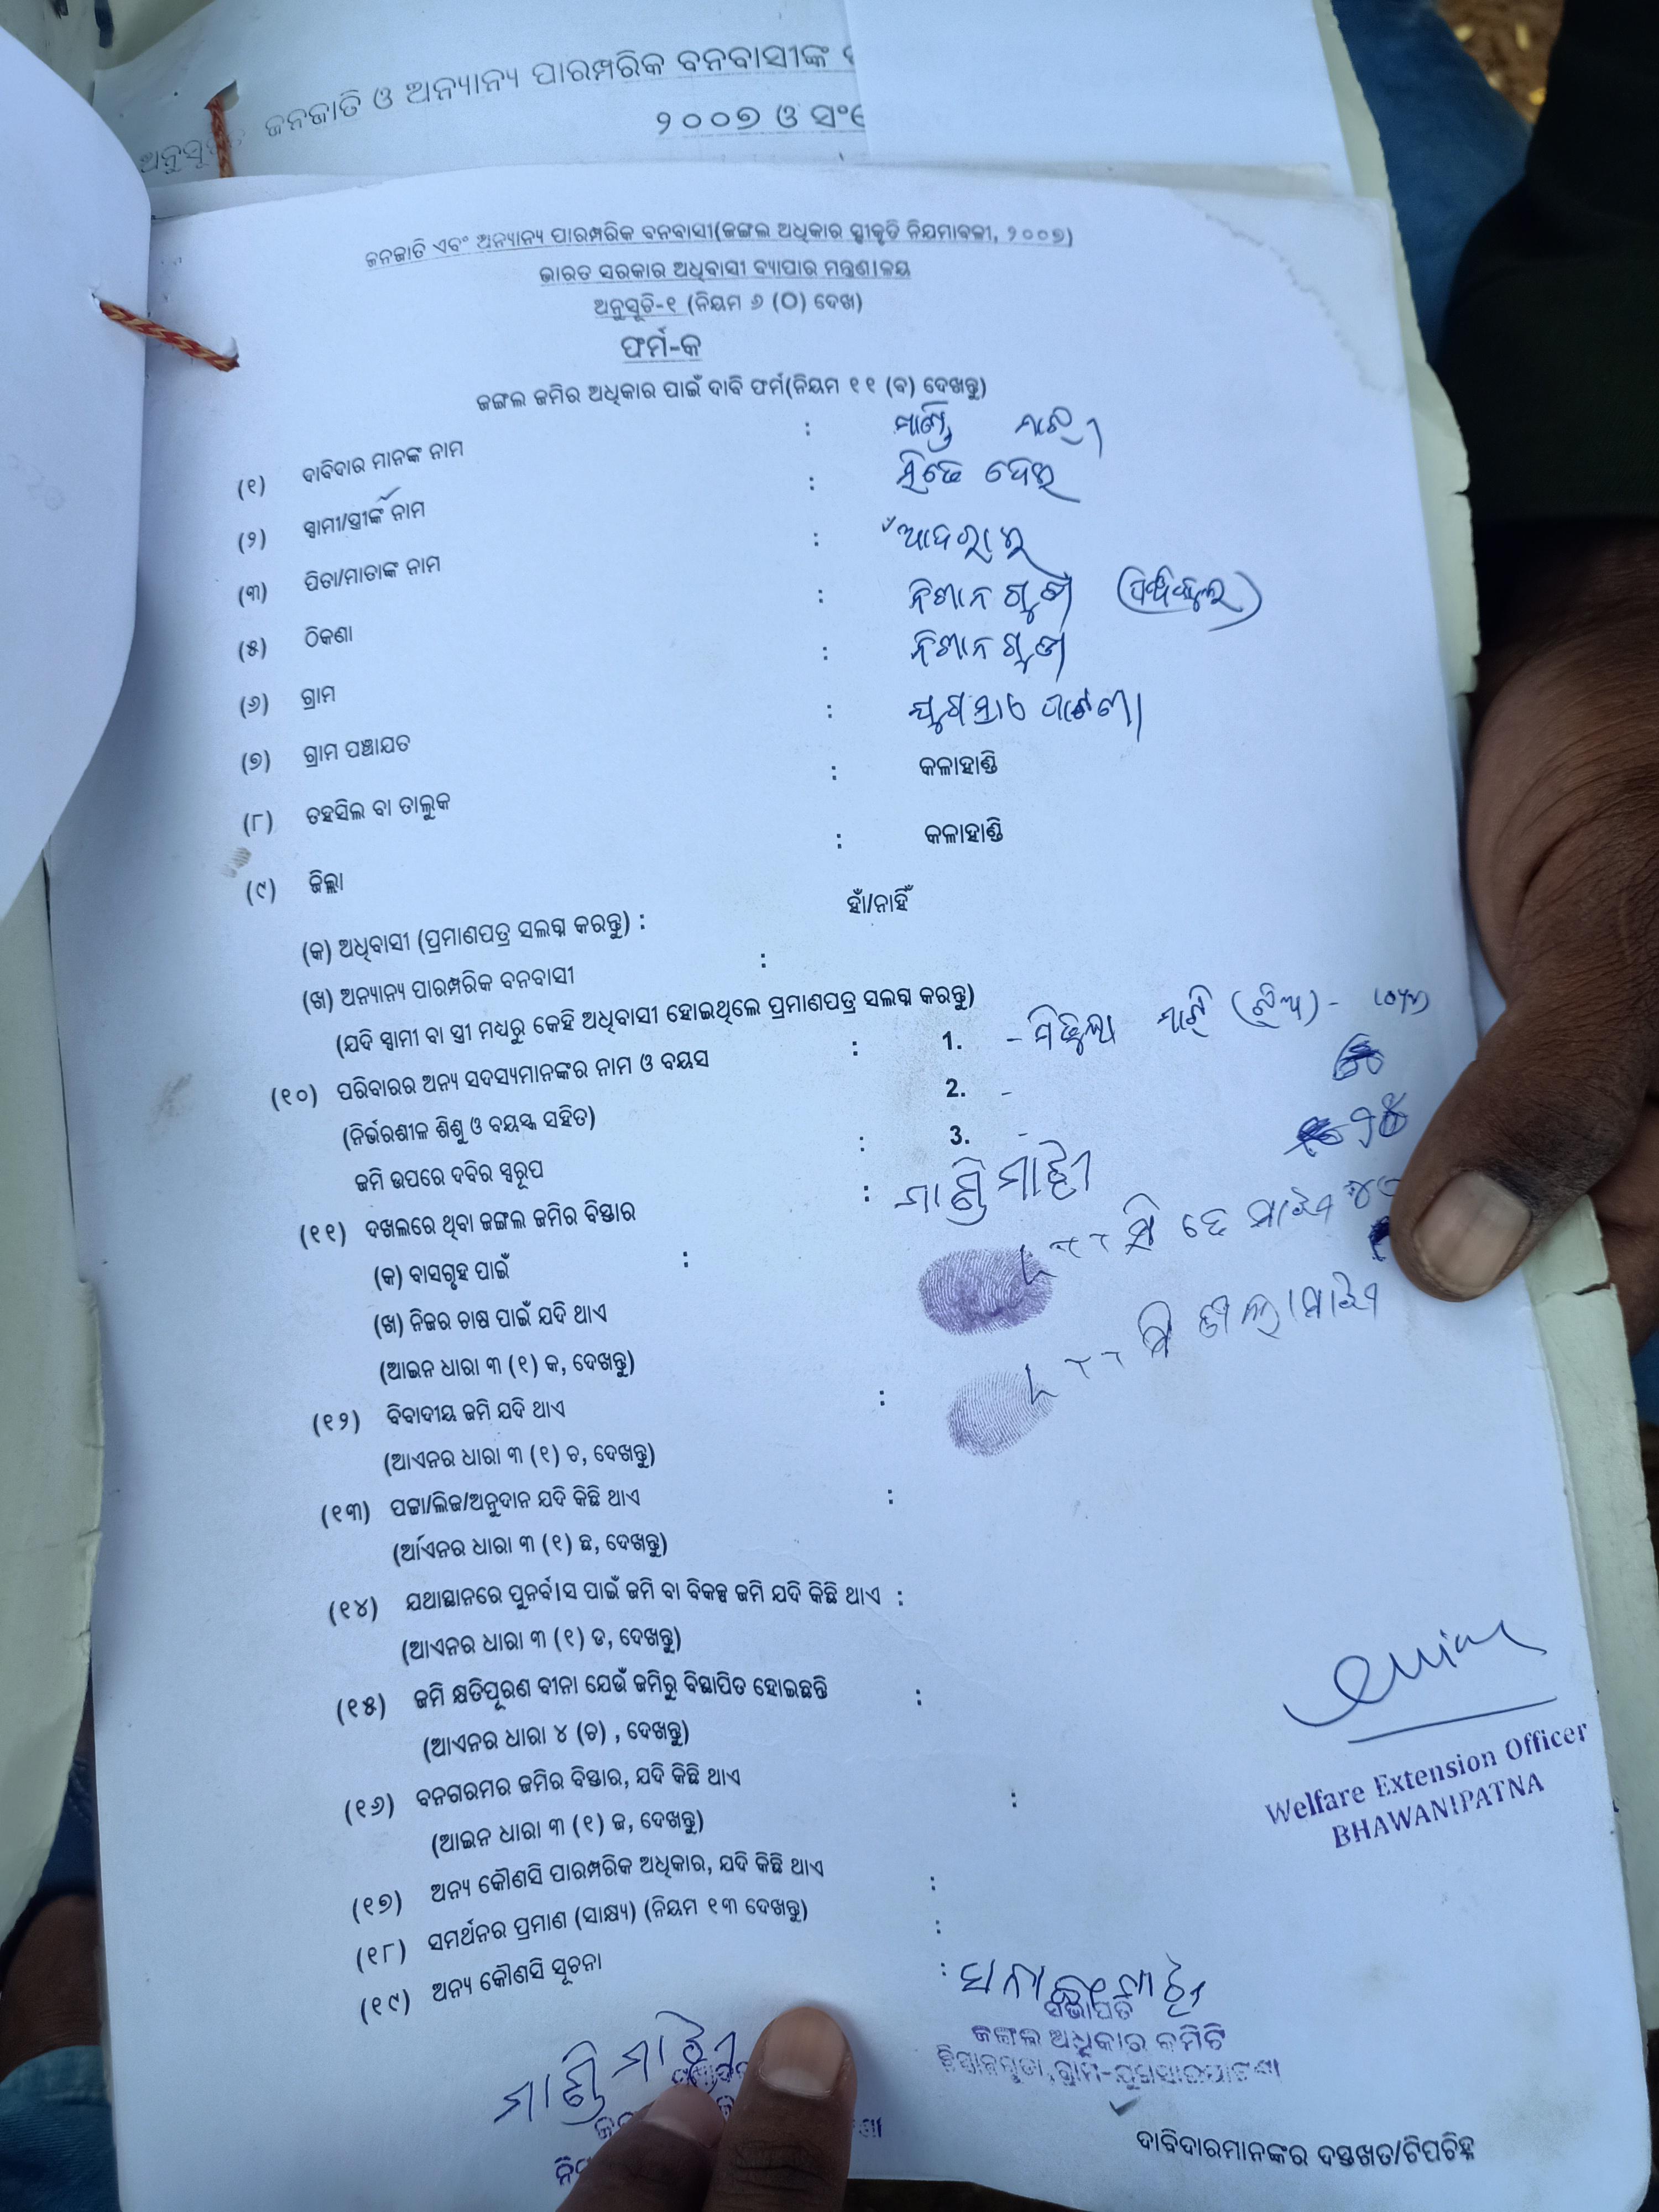 ଜନଜାତି ଓ ଅନ୍ୟାନ୍ୟ ପାରମ୍ପରିକ ବନବାସୀଙ୍କ
୨୦୦୭ ଓ
ଜନଜାତି ଏବଂ ଅନ୍ୟାନ୍ୟ ପାରମ୍ପରିକ ବନବାସୀ(ଜଙ୍ଗଲ ଅଧିକାର ସ୍ୱୀକୃତି ନିୟମାବଳୀ, ୨୦୦୭)
ଭାରତ ସରକାର ଅଧିବାସୀ ବ୍ୟାପାର ମନ୍ତ୍ରଣାଳୟ
ଅନୁସୂଚି-୧ (ନିୟମ ୬ (ଠ) ଦେଖ)
ଫର୍ମ-କ
ଜଙ୍ଗଲ ଜମିର ଅଧିକାର ପାଇଁ ଦାବି ଫର୍ମ(ନିୟମ ୧୧ (ବ) ଦେଖନ୍ତୁ)
(୧) ଦାବିଦାର ମାନଙ୍କ ନାମ :
(୨) ସ୍ୱାମୀ/ସ୍ତ୍ରୀଙ୍କ ନାମ :
(୩) ପିତା/ମାତାଙ୍କ ନାମ :
(୫) ଠିକଣା : ନିଶାନଗୁଡ଼ା
(୬) ଗ୍ରାମ : ନିଶାନଗୁଡ଼ା
(୭) ଗ୍ରାମ ପଞ୍ଚାଯତ :
(୮) ତହସିଲ ବା ତାଲୁକ : କଳାହାଣ୍ଡି
(୯) ଜିଲ୍ଲା : କଳାହାଣ୍ଡି
(କ) ଅଧିବାସୀ (ପ୍ରମାଣପତ୍ର ସଲଗ୍ନ କରନ୍ତୁ) : ହଁ/ନାହିଁ
(ଖ) ଅନ୍ୟାନ୍ୟ ପାରମ୍ପରିକ ବନବାସୀ :
(ଯଦି ସ୍ୱାମୀ ବା ସ୍ତ୍ରୀ ମଧ୍ୟରୁ କେହି ଅଧିବାସୀ ହୋଇଥିଲେ ପ୍ରମାଣପତ୍ର ସଲଗ୍ନ କରନ୍ତୁ)
(୧୦) ପରିବାରର ଅନ୍ୟ ସଦସ୍ୟମାନଙ୍କର ନାମ ଓ ବୟସ : 1.
(ନିର୍ଭରଶୀଳ ଶିଶୁ ଓ ବୟସ୍କ ସହିତ) 2. -
ଜମି ଉପରେ ଦବିର ସ୍ୱରୂପ : 3. -
(୧୧) ଦଖଲରେ ଥିବା ଜଙ୍ଗଲ ଜମିର ବିସ୍ତାର : ମାଣ୍ଡି ମାଝୀ
(କ) ବାସଗୃହ ପାଇଁ :
(ଖ) ନିଜର ଚାଷ ପାଇଁ ଯଦି ଥାଏ
(ଆଇନ ଧାରା ୩ (୧) କ, ଦେଖନ୍ତୁ)
(୧୨) ବିବାଦୀୟ ଜମି ଯଦି ଥାଏ :
(ଆଏନର ଧାରା ୩ (୧) ଚ, ଦେଖନ୍ତୁ)
(୧୩) ପଟ୍ଟା/ଲିଜ/ଅନୁଦାନ ଯଦି କିଛି ଥାଏ :
(ଆଏନର ଧାରା ୩ (୧) ଛ, ଦେଖନ୍ତୁ)
(୧୪) ଯଥାସ୍ଥାନରେ ପୁନର୍ବାସ ପାଇଁ ଜମି ବା ବିକଳ୍ପ ଜମି ଯଦି କିଛି ଥାଏ :
(ଆଏନର ଧାରା ୩ (୧) ଡ, ଦେଖନ୍ତୁ)
(୧୫) ଜମି କ୍ଷତିପୂରଣ ବୀନା ଯେଉଁ ଜମିରୁ ବିସ୍ଥାପିତ ହୋଇଛନ୍ତି :
(ଆଏନର ଧାରା ୪ (ଚ) , ଦେଖନ୍ତୁ)
(୧୬) ବନଗରମର ଜମିର ବିସ୍ତାର, ଯଦି କିଛି ଥାଏ :
(ଆଇନ ଧାରା ୩ (୧) ଜ, ଦେଖନ୍ତୁ)
Welfare Extension Officer
BHAWANIPATNA
(୧୭) ଅନ୍ୟ କୌଣସି ପାରମ୍ପରିକ ଅଧିକାର, ଯଦି କିଛି ଥାଏ :
(୧୮) ସମର୍ଥନର ପ୍ରମାଣ (ସାକ୍ଷ୍ୟ) (ନିୟମ ୧୩ ଦେଖନ୍ତୁ) :
(୧୯) ଅନ୍ୟ କୌଣସି ସୂଚନା :
ସଭାପତି
ଜଙ୍ଗଲ ଅଧିକାର କମିଟି
ମାଣ୍ଡି ମାଝୀ
ଦାବିଦାରମାନଙ୍କର ଦସ୍ତଖତ/ଟିପଚିହ୍ନ